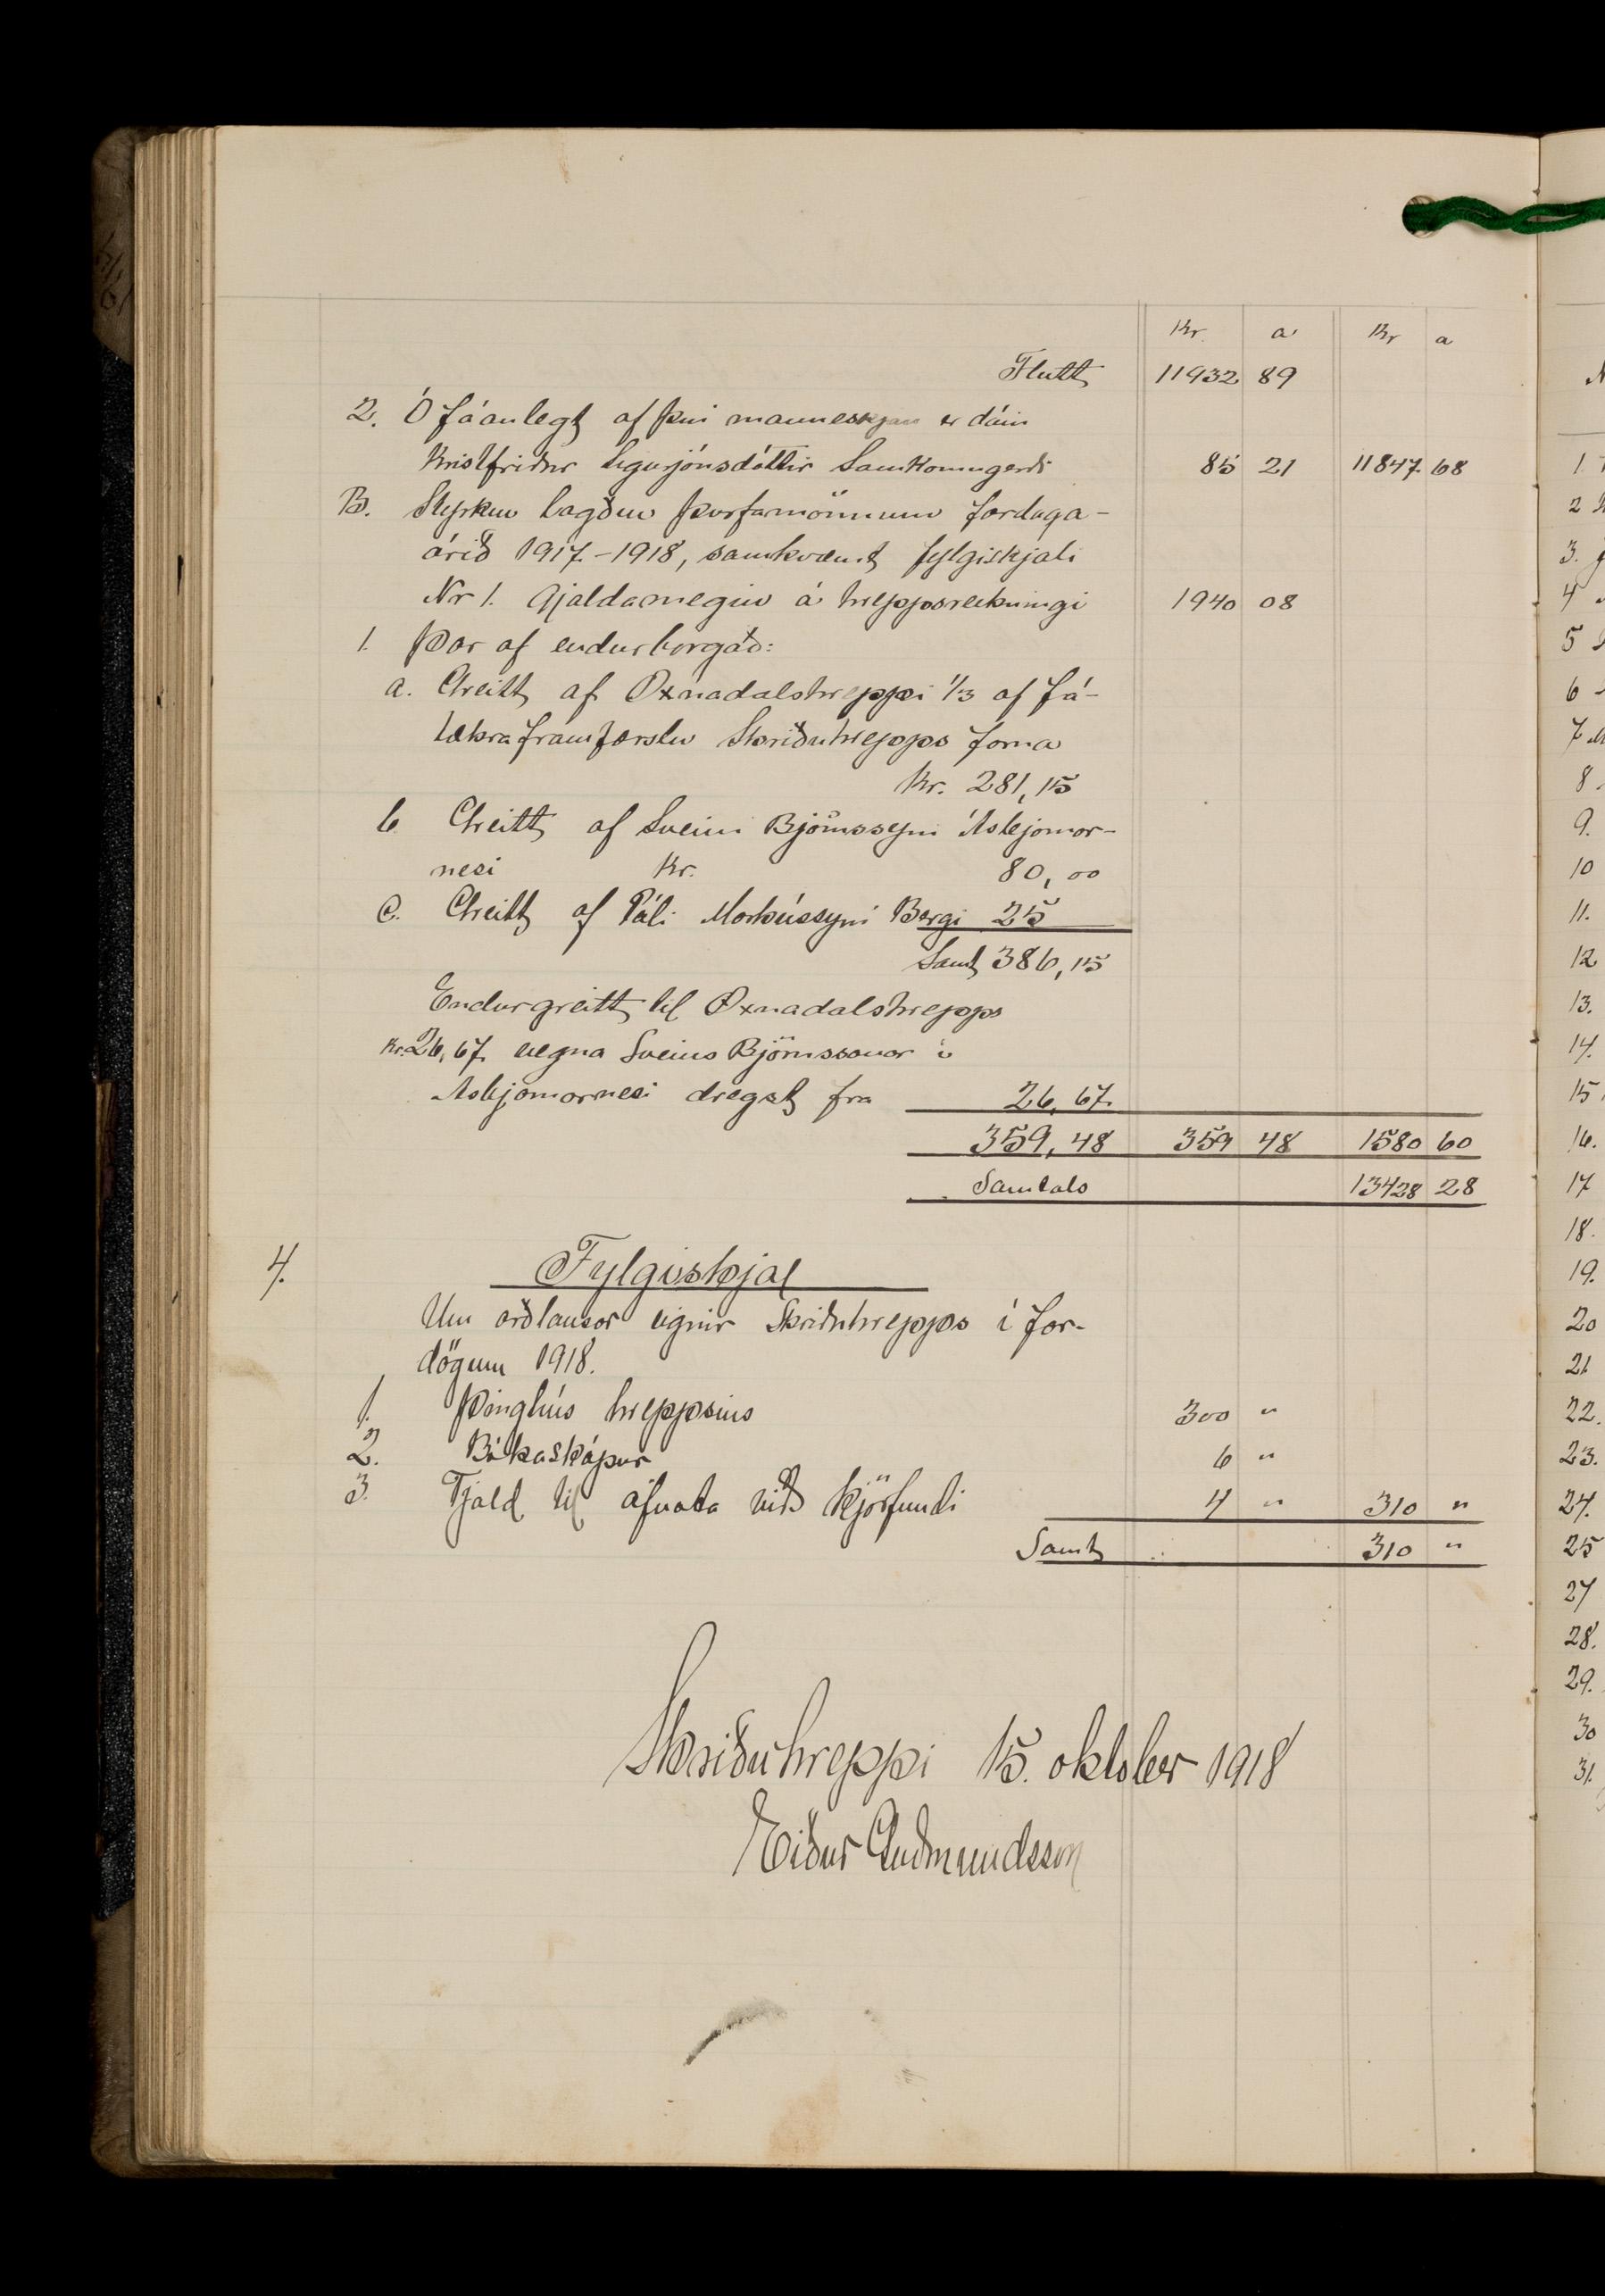 Kr. a Kr a
Flutt 11932 89
2. Ófáanlegt af því manneskjan er dáin
Kristfriður Sigurjónsdóttir Samkomugerði 85 21 11847 68
B. Styrkur lagður þurfamönnum fardaga-
árið 1917-1918, samkvæmt fylgiskjali
Nr 1. Gjaldamegin á hreppsreikningi 1940 08
1. Þar af endurborgað:
a. Greitt af Öxnadalshreppi 1/3 af fá-
tækraframfærslu Skriðuhrepps forna
Kr. 281,15
b Greitt af Sveini Björnssyni Ásbjarnar-
nesi Kr. 80,00
c. Greitt af Páli Markússyni Bergi 25
Samt 386,15
Endurgreitt til Öxnadalshrepps
kr. 26,67 vegna Sveins Björnssonar í
Ásbjarnarnesi dregst frá 26,67
359,48 359 48 1580 60
Samtals 13428 28
4. Fylgiskjal
Um arðlausar eignir Skriðuhrepps í far-
dögum 1918.
1. Þinghús hreppsins 300 "
2. Bókaskápur 6 "
3. Tjald til afnota við kjörfundi 4 " 310 "
Samt 310 "
Skriðuhreppi 15. oktober 1918
Eiður Guðmundsson
1.
2
3.
4
5
6
7
8
9.
10
11.
12
13.
14.
15
16.
17
18.
19.
20
21
22.
23.
24.
25
27
28.
29.
30
31.